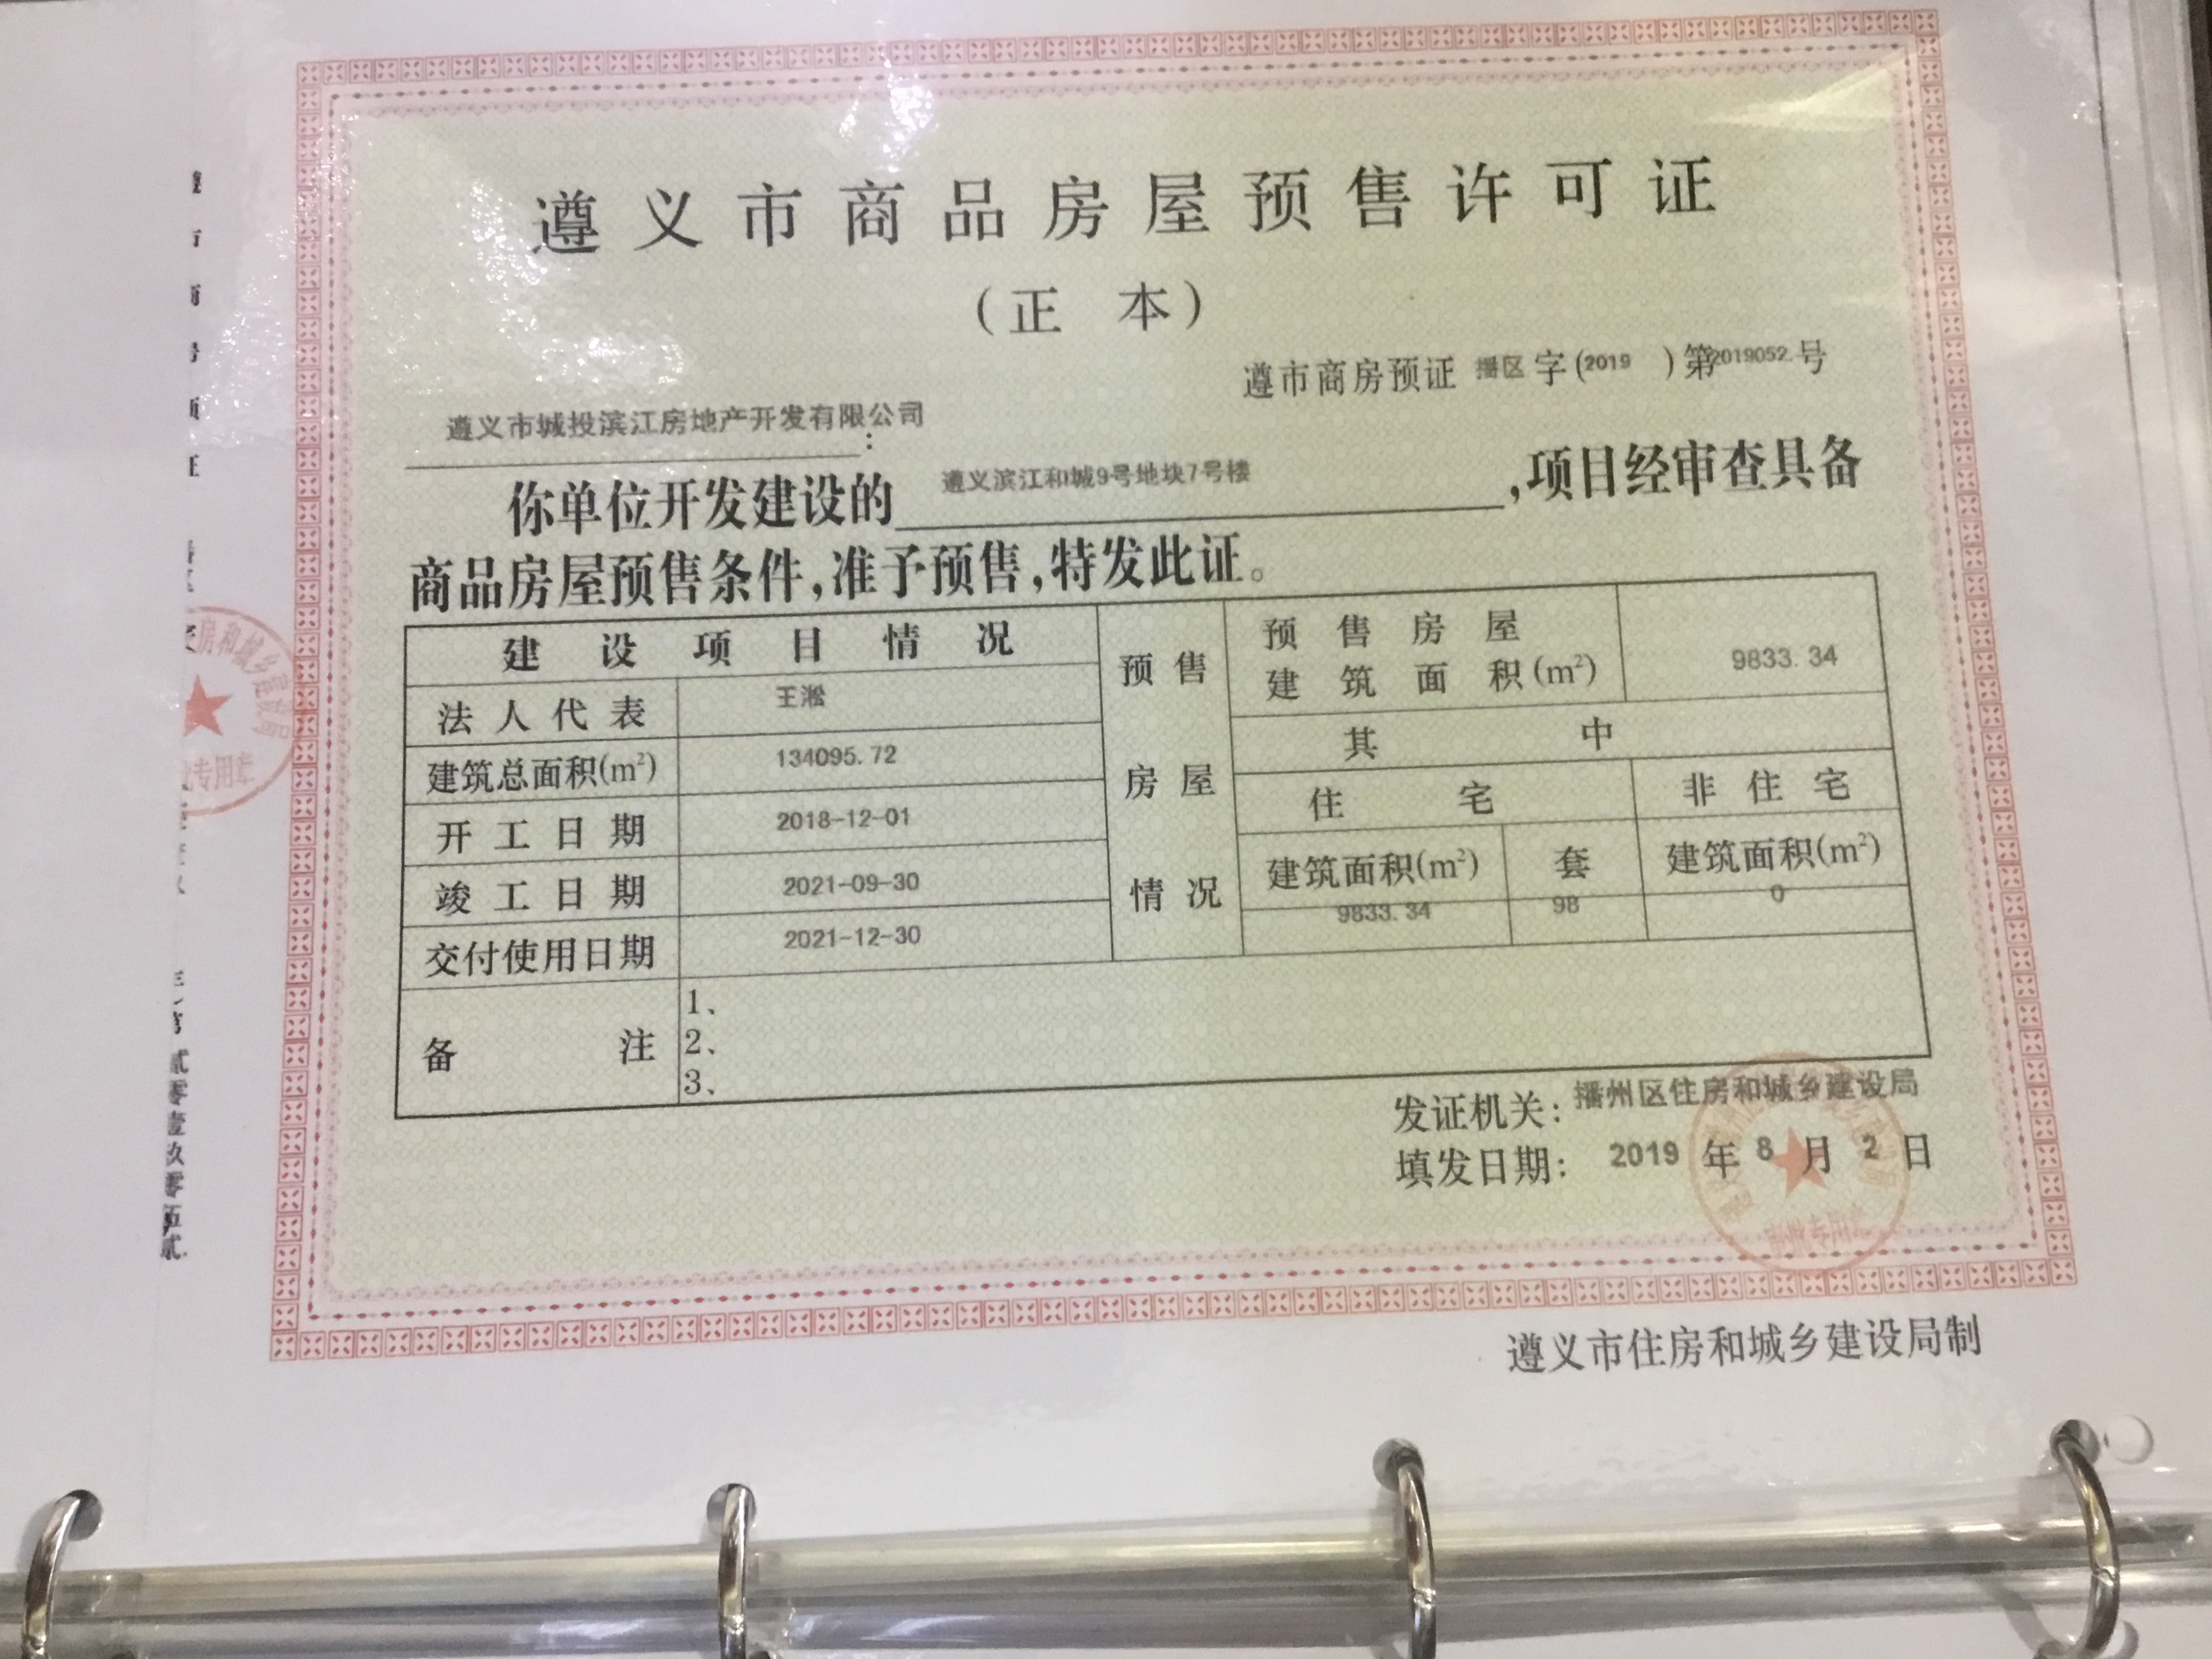 遵义市商品房屋预售许可证
(正 本)
遵市商房预证 播区 字(2019 )第2019052.号
遵义市城投滨江房地产开发有限公司:
你单位开发建设的 遵义滨江和城9号地块7号楼 ,项目经审查具备
商品房屋预售条件,准予预售,特发此证。
建设项目情况
法人代表 王淞
建筑总面积(m²) 134095.72
开工日期 2018-12-01
竣工日期 2021-09-30
交付使用日期 2021-12-30
预售房屋情况
预售房屋建筑面积(m²) 9833.34
其中
住宅 非住宅
建筑面积(m²) 套 建筑面积(m²)
9833.34 98 0
备注
1、
2、
3、
发证机关:播州区住房和城乡建设局
填发日期: 2019 年 8 月 2 日
遵义市住房和城乡建设局制
房和城乡建设局
专用章
贰零壹玖零伍贰